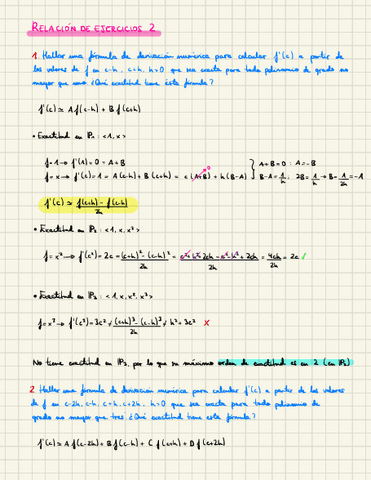 RELACIÓN DE EJERCICIOS 2
1. Hallar una fórmula de derivación numérica para calcular f'(c) a partir de
los valores de f en c-h, c+h, h>0 que sea exacta para todo polinomio de grado no
mayor que uno ¿Qué exactitud tiene esta fórmula?
f'(c) ≃ A f(c-h) + B f(c+h)
• Exactitud en ℙ₁: <1, x>
f=1 → f'(1) = 0 = A+B
f=x → f'(c) = 1 = A(c-h) + B(c+h) = c(A+B) + h(B-A) } A+B=0 : A=-B
B-A = 1/h ; 2B = 1/h → B = 1/2h = -A
f'(c) ≃ f(c+h) - f(c-h) / 2h
• Exactitud en ℙ₂: <1, x, x²>
f=x² → f'(c²) = 2c = (c+h)² - (c-h)² / 2h = c²+h²+2ch - c²-h²+2ch / 2h = 4ch / 2h = 2c ✓
• Exactitud en ℙ₃: <1, x, x², x³>
f=x³ → f'(c³) = 3c² ≠ (c+h)³ - (c-h)³ / 2h = h² + 3c² ✗
No tiene exactitud en ℙ₃, por lo que su máximo orden de exactitud es en 2 (en ℙ₂)
2. Hallar una fórmula de derivación numérica para calcular f'(c) a partir de los valores
de f en c-2h, c-h, c+h, c+2h, h>0 que sea exacta para todo polinomio de
grado no mayor que tres ¿Qué exactitud tiene esta fórmula?
f'(c) ≃ A f(c-2h) + B f(c-h) + C f(c+h) + D f(c+2h)